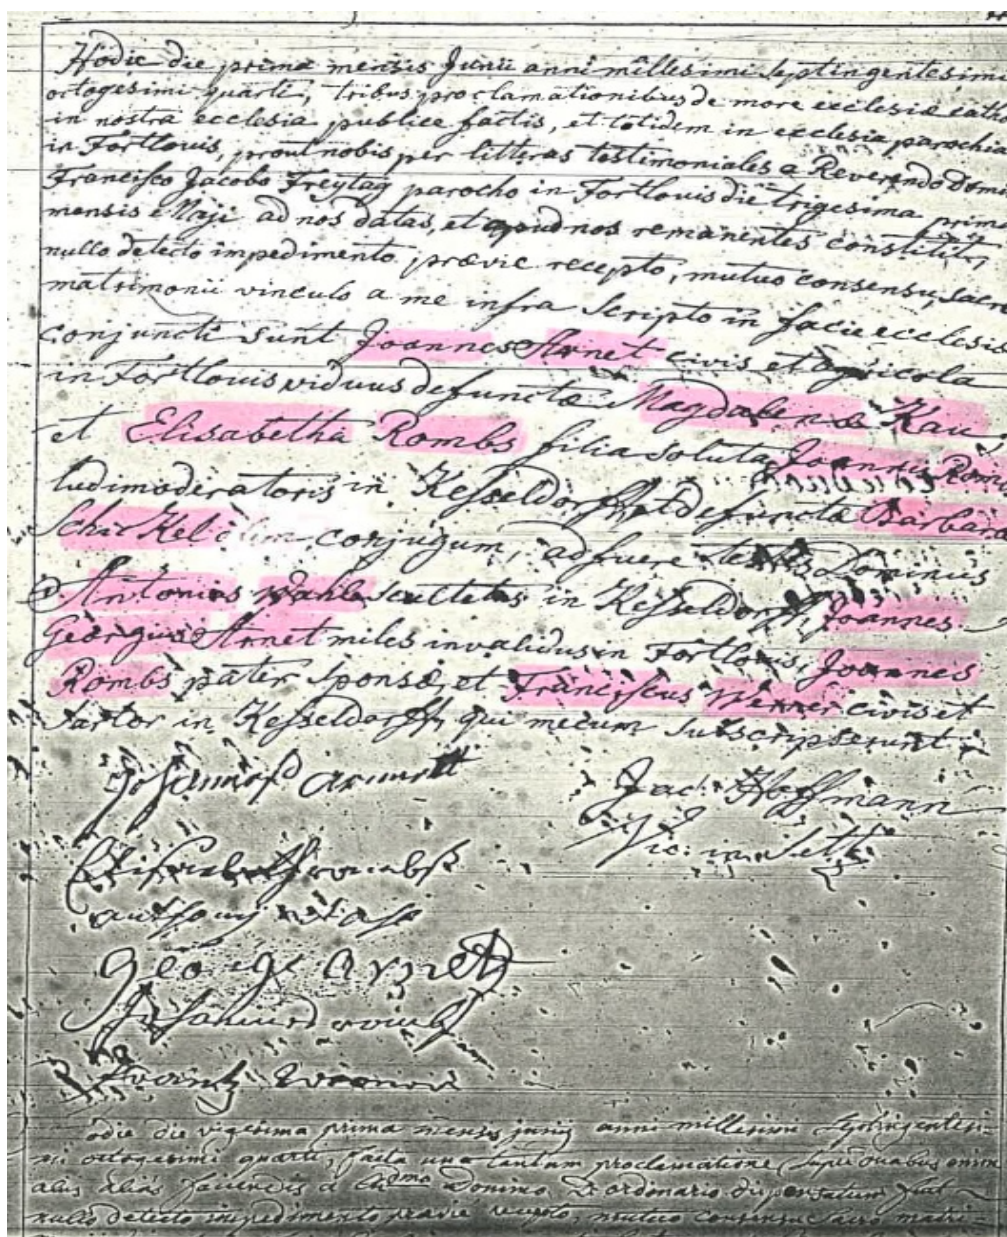 Hodie die prima mensis Junii anni millesimi septingentesimi
octogesimi quarti, tribus proclamationibus de more ecclesiæ cath
in nostra ecclesia publice factis, et totidem in ecclesia parochia
in Fortlouis, prout nobis per litteras testimoniales a Reverendo Domi
Francisco Jacobo Freytag parocho in Fortlouis die trigesima prim
mensis Maji ad nos datas, et apud nos remanentes constitit,
nullo detecto impedimento prævie recepto, mutuo consensu, sacro
matrimonii vinculo a me infra scripto in facie ecclesiæ
conjuncti sunt Joannes Arnet civis et agricola
in Fortlouis viduus defunctæ Magdalenæ Kau
et Elisabetha Rombs filia soluta Joannis Rom
ludimoderatoris in Kesseldorff, et defunctæ Barbara
Schirkel olim conjugum, adfuere testes Dominus
Antonius Wahl scultetus in Kesseldorff, Joannes
Georgius Arnet miles invalidus in Fortlouis, Joannes
Rombs pater sponsæ, et Franciscus Werner civis et
sartor in Kesseldorff, qui mecum subscripserunt.
Johannes arnett
Jac: Hoffmann
Vic: in Seltz
Elisabetha rombs
George Arnet
Johannes rombs
Frantz werner
odie die vigesima prima mensis junij anni millesimi septingentesi-
mi octogesimi quarti, facta una tantum proclamatione, super duabus omni
aliis alias faciendis a Domino D. ordinario dispensatum fuit
nullo detecto impedimento prævie recepto, mutuo consensu sacro matri-